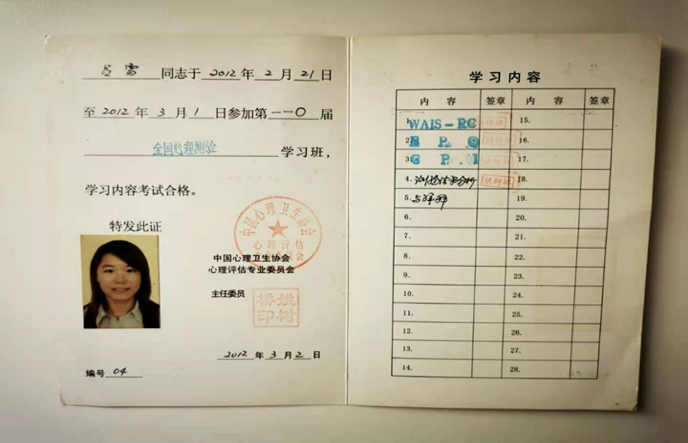 吕雪 同志于 2012 年 2 月 21 日
至 2012 年 3 月 1 日参加第 一一〇 届
全国心理测验 学习班，
学习内容考试合格。
特发此证
中国心理卫生协会
心理评估
中国心理卫生协会
心理评估专业委员会
主任委员
姚树桥印
2012 年 3 月 2 日
编号 04
学习内容
内 容 签章 内 容 签章
1. WAIS-RC 15.
2. E P Q 16.
3. C P I 17.
4. 测验结果分析 18.
5. 与解释 19.
6. 20.
7. 21.
8. 22.
9. 23.
10. 24.
11. 25.
12. 26.
13. 27.
14. 28.